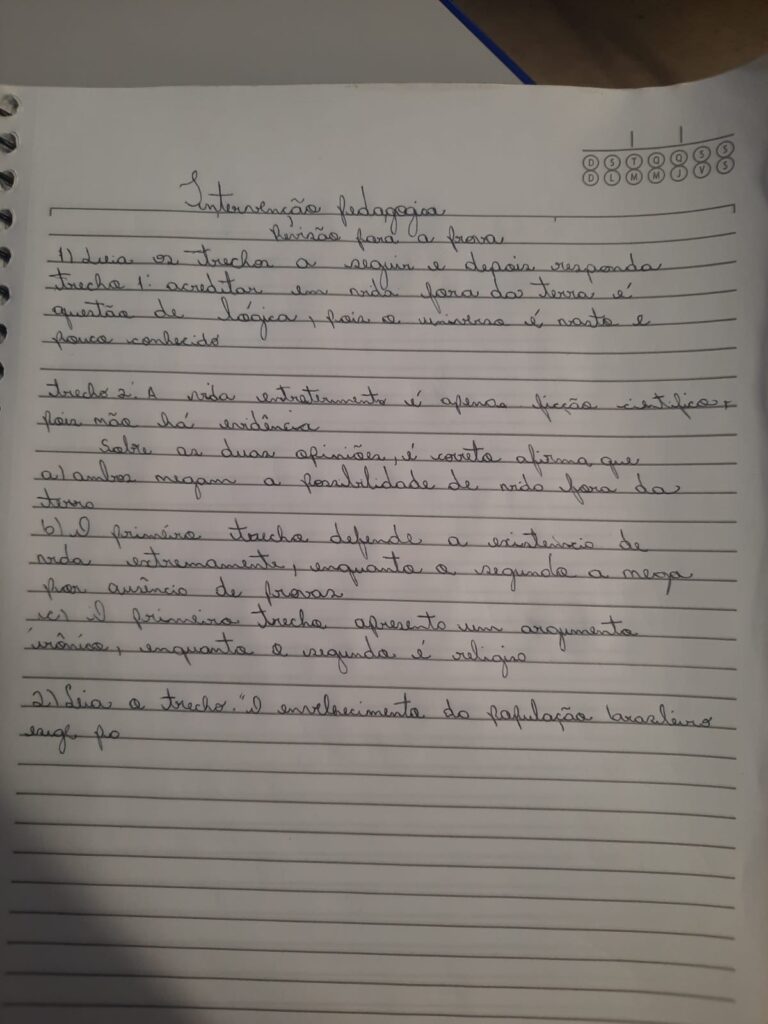 D S T Q Q S S
D L M M J V S
Intervenção pedagogia
Revisão para a prova
1) Leia os trechos a seguir e depois responda
trecho 1: acreditar em vida fora da terra é
questão de lógica, pois o universo é vasto e
pouco conhecido
trecho 2: A vida entraterment é apenas ficção cientifica,
pois não há evidência
Sobre as duas opiniões, é correto afirma que
a) ambos negam a possibilidade de vida fora da
terra
b) O primeiro trecho defende a existeincia de
vida extremamente, enquanto o segundo a nega
por ausência de provas
c) O primeiro trecho apresenta um argumento
irônico, enquanto o segundo é religiso
2) Leia o trecho. "O envelhecimento da população brasileira
exige po